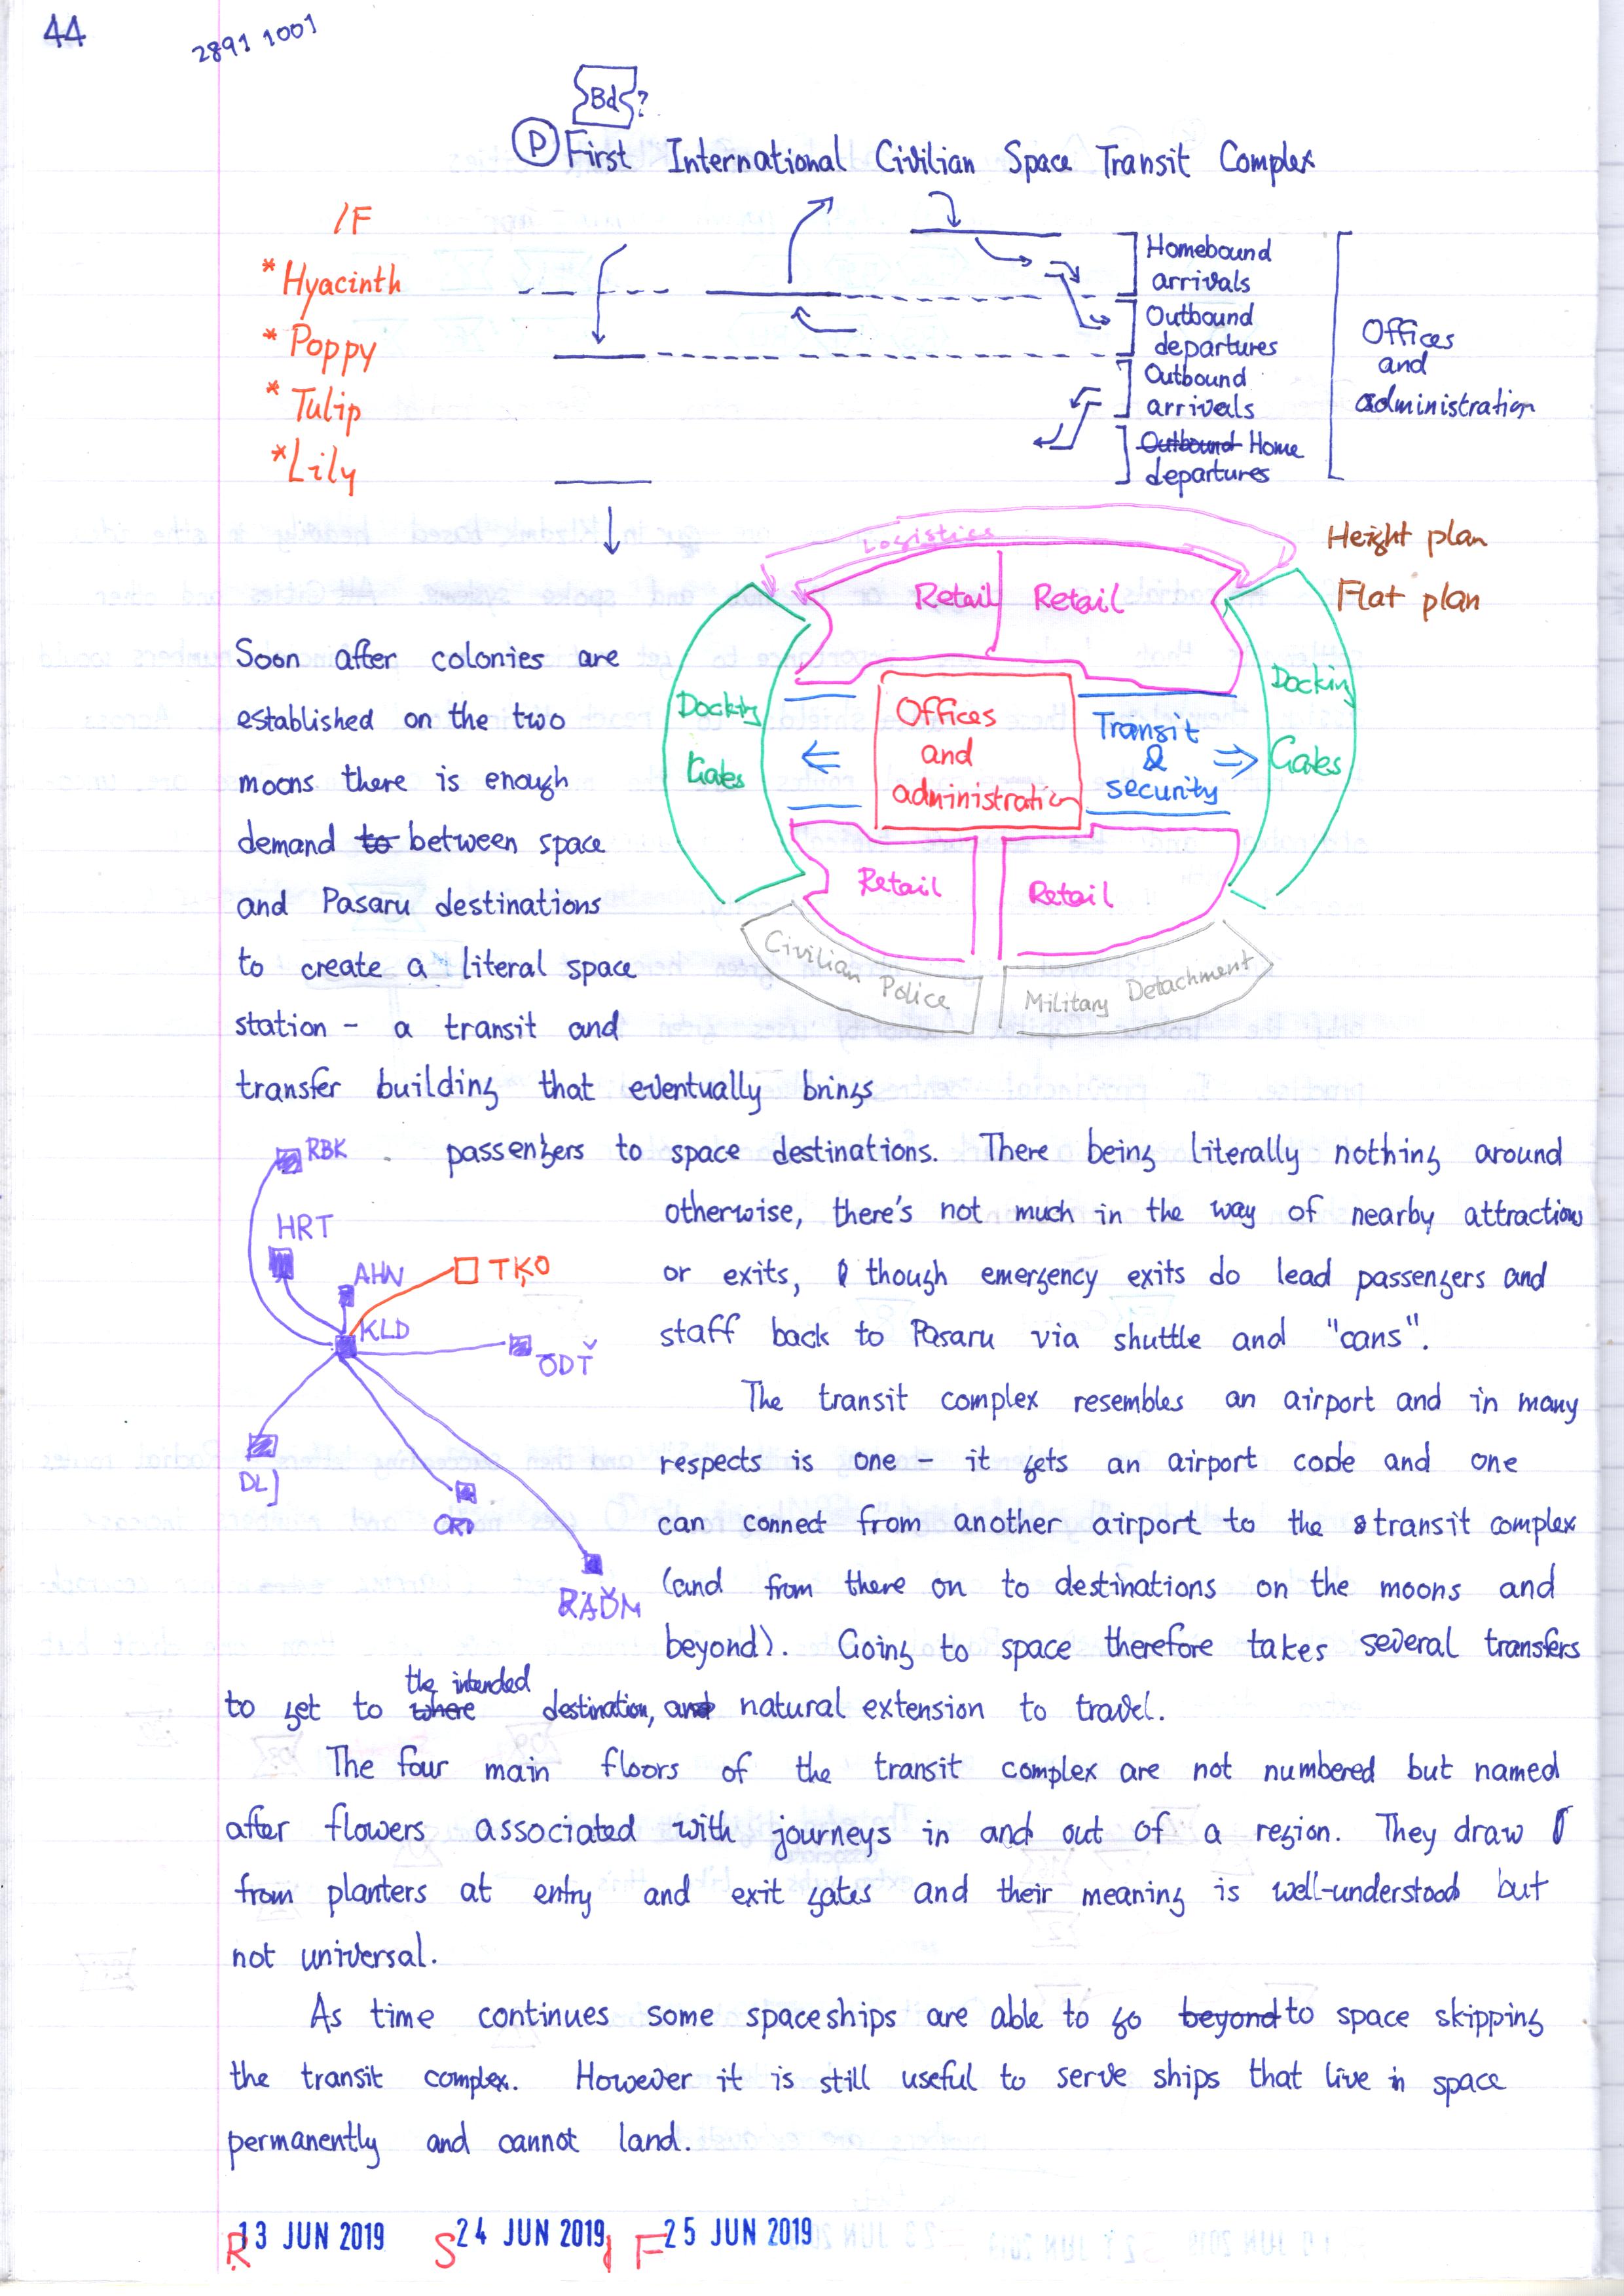 44
2891 1001
Bd ?
P First International Civilian Space Transit Complex
/F
* Hyacinth
* Poppy
* Tulip
* Lily
Homebound
arrivals
Outbound
departures
Outbound
arrivals
Outbound Home
departures
Offices
and
administration
Height plan
Flat plan
Logistics
Retail
Retail
Docking
Gates
Offices
and
administration
Transit
&
security
Docking
Gates
Retail
Retail
Civilian Police
Military Detachment
Soon after colonies are
established on the two
moons there is enough
demand to between space
and Pasaru destinations
to create a literal space
station - a transit and
transfer building that eventually brings
passengers to space destinations. There being literally nothing around
otherwise, there's not much in the way of nearby attractions
or exits, though emergency exits do lead passengers and
staff back to Pasaru via shuttle and "cans".
RBK
HRT
AHN
TĶO
KLD
ODŤ
DLJ
ORD
The transit complex resembles an airport and in many
respects is one - it gets an airport code and one
can connect from another airport to the transit complex
(and from there on to destinations on the moons and
beyond). Going to space therefore takes several transfers
to get to where the intended destination, and natural extension to travel.
The four main floors of the transit complex are not numbered but named
after flowers associated with journeys in and out of a region. They draw
from planters at entry and exit gates and their meaning is well-understood but
not universal.
As time continues some spaceships are able to go beyond to space skipping
the transit complex. However it is still useful to serve ships that live in space
permanently and cannot land.
R 13 JUN 2019 S 24 JUN 2019 F 25 JUN 2019